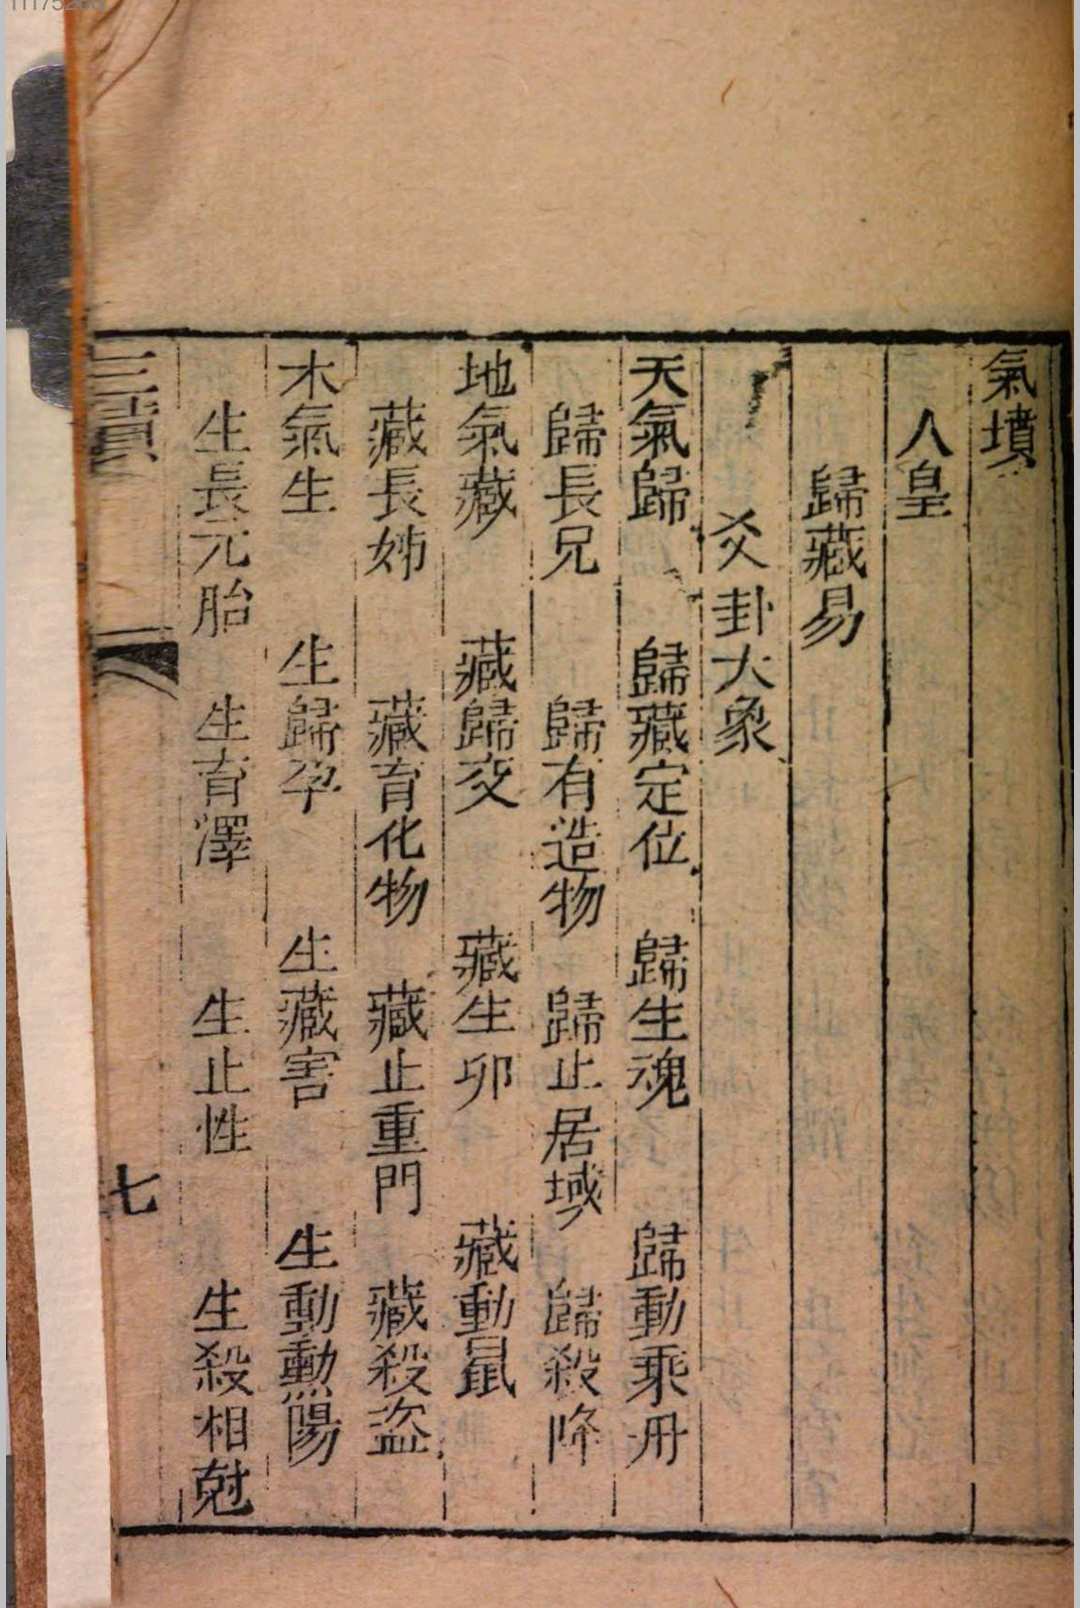 氣墳
人皇
歸藏易
爻卦大象
天氣歸 歸藏定位 歸生魂 歸動乘舟
歸長兄 歸有造物 歸止居域 歸殺降
地氣藏 藏歸交 藏生卵 藏動鼠
藏長姊 藏育化物 藏止重門 藏殺盜
木氣生 生歸孕 生藏害 生動勳陽
生長元胎 生育澤 生止性 生殺相尅
三墳
七